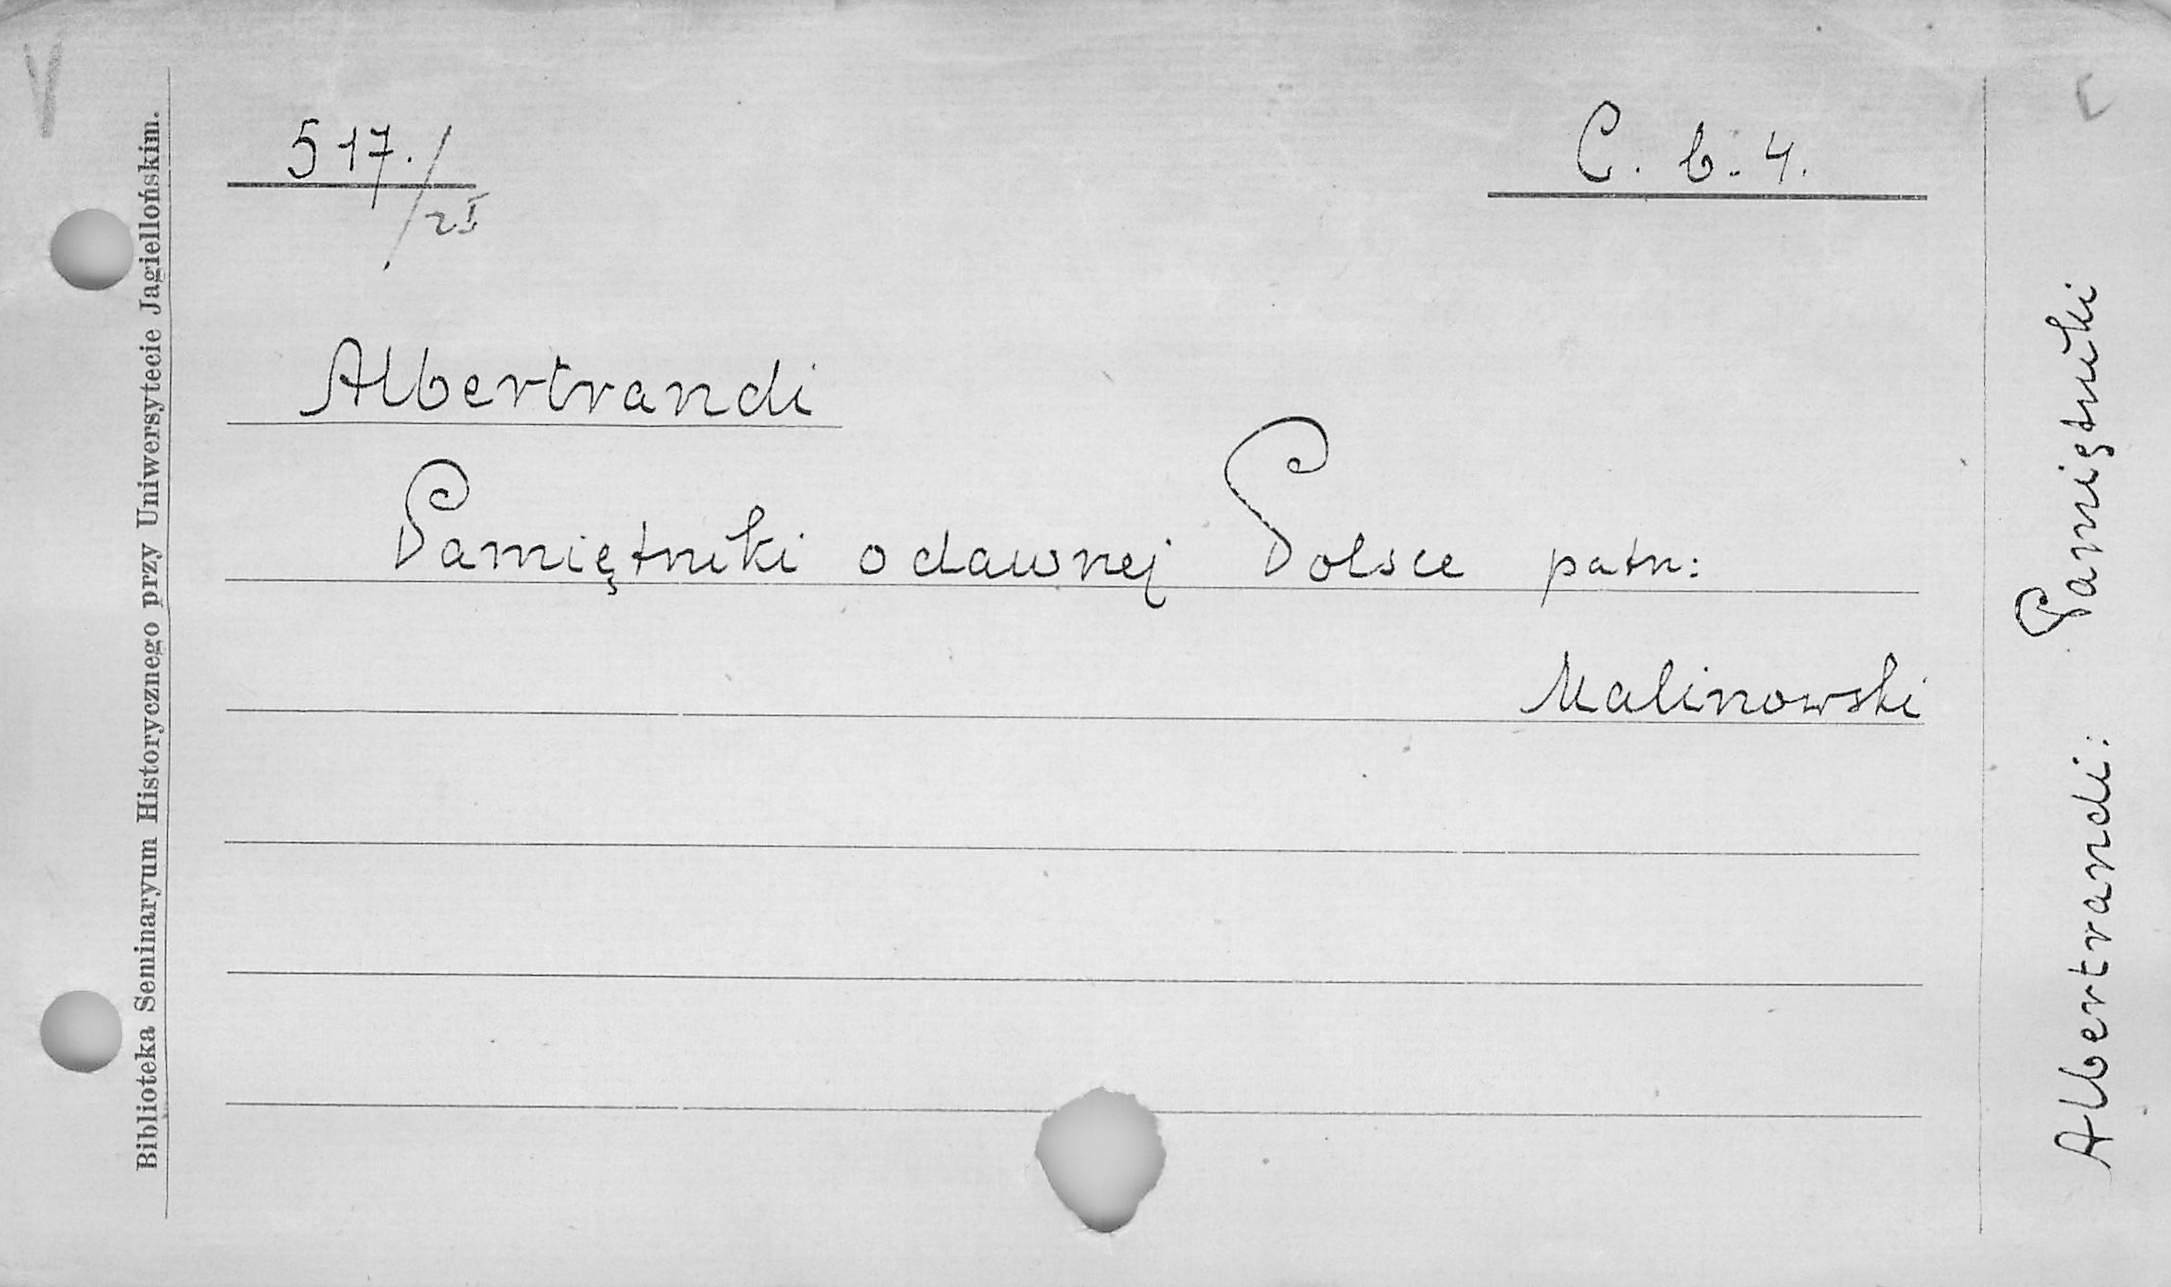 Biblioteka Seminaryum Historycznego przy Uniwersytecie Jagiellońskim.
517./zI
C. b. 4.
Albertrandi
Pamiętniki o dawnej Polsce patr:
Malinowski
Albertrandi: Pamiętniki